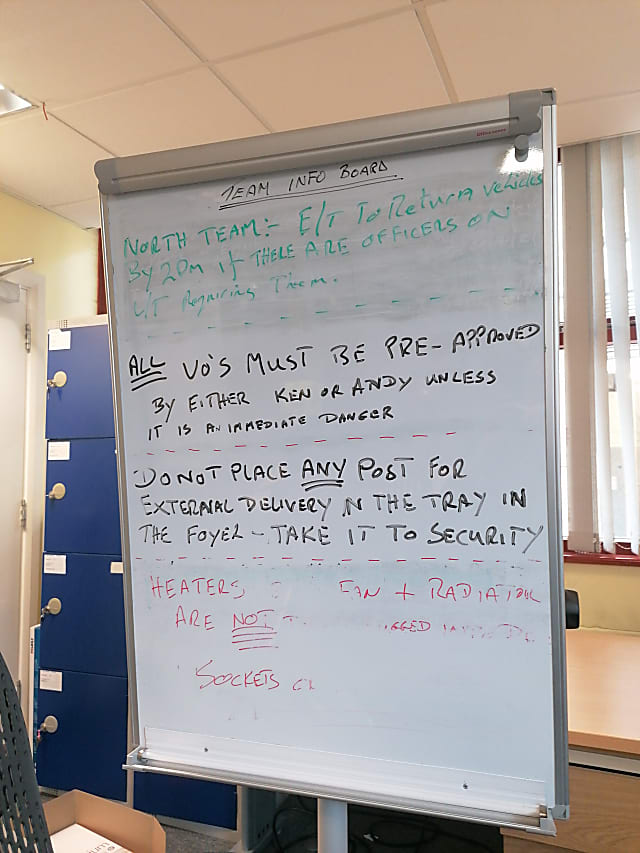 TEAM INFO BOARD
NORTH TEAM:- E/T To Return vehicles
By 20m if THERE ARE OFFICERS ON
L/T Requiring Them.
ALL VO'S MUST BE PRE-APPROVED
BY EITHER KEN OR ANDY UNLESS
IT IS AN IMMEDIATE DANGER
DO NOT PLACE ANY POST FOR
EXTERNAL DELIVERY IN THE TRAY IN
THE FOYER - TAKE IT TO SECURITY
HEATERS FAN + RADIATOR
ARE NOT
SOCKETS